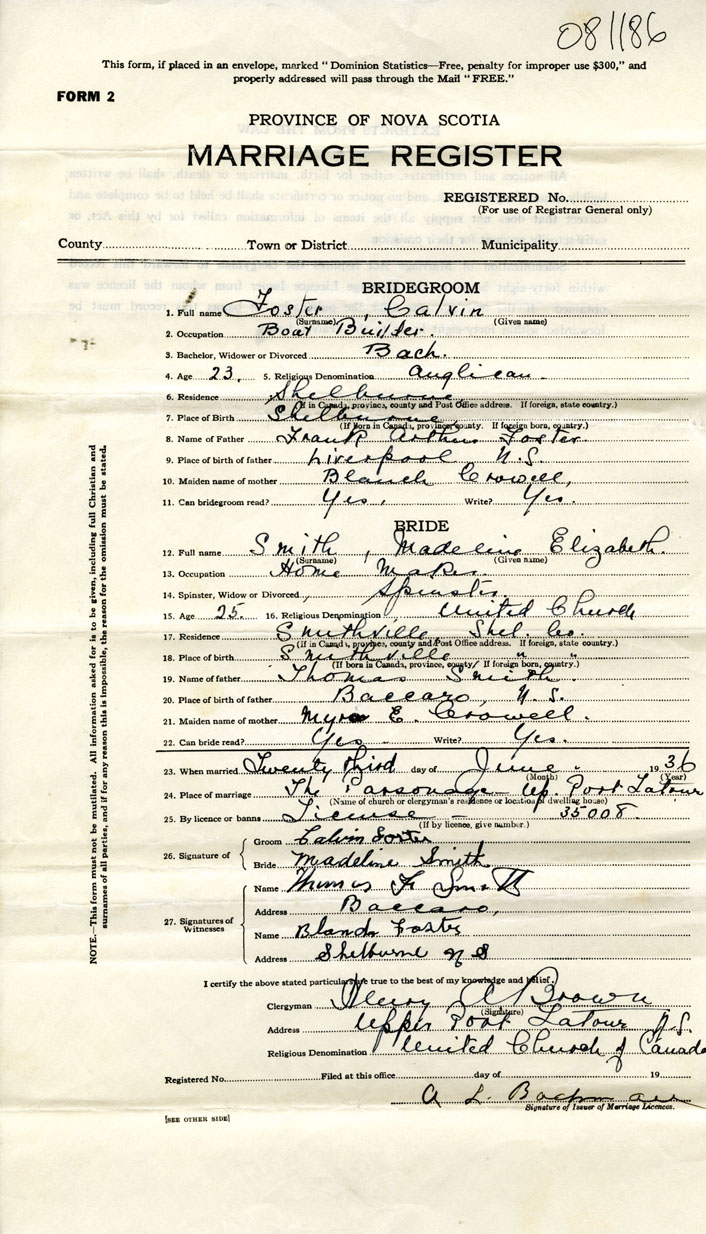 081186
This form, if placed in an envelope, marked "Dominion Statistics—Free, penalty for improper use $300," and
properly addressed will pass through the Mail "FREE."
FORM 2
PROVINCE OF NOVA SCOTIA
MARRIAGE REGISTER
REGISTERED No.
(For use of Registrar General only)
County Town or District Municipality
BRIDEGROOM
1. Full name Foster, Calvin
(Surname) (Given name)
2. Occupation Boat Builder.
3. Bachelor, Widower or Divorced Bach.
4. Age 23. 5. Religious Denomination Anglican.
6. Residence Shelburne
(If in Canada, province, county and Post Office address. If foreign, state country.)
7. Place of Birth Shelburne
(If Born in Canada, province, county. If foreign born, country.)
8. Name of Father Frank Arthur Foster
9. Place of birth of father Liverpool N.S.
10. Maiden name of mother Blanch Crowell,
11. Can bridegroom read? Yes, Write? Yes.
BRIDE
12. Full name Smith, Madeline Elizabeth.
(Surname) (Given name)
13. Occupation Home Maker
14. Spinster, Widow or Divorced Spinster.
15. Age 25. 16. Religious Denomination United Church
17. Residence Smithville, Shel. Co.
(If in Canada, province, county and Post Office address. If foreign, state country.)
18. Place of birth Smithville " "
(If born in Canada, province, county. If foreign born, country.)
19. Name of father Thomas Smith.
20. Place of birth of father Baccaro, N.S.
21. Maiden name of mother Myra E. Crowell.
22. Can bride read? Yes Write? Yes.
23. When married Twenty third day of June. 1936
(Month) (Year)
24. Place of marriage The Parsonage Up. Port Latour
(Name of church or clergyman's residence or location of dwelling house)
25. By licence or banns License — 35008.
(If by licence, give number.)
26. Signature of
Groom Calvin Foster
Bride Madeline Smith
27. Signatures of Witnesses
Name Smith
Address Baccaro,
Name Blanch Foster
Address Shelburne N S
I certify the above stated particulars are true to the best of my knowledge and belief.
Clergyman Henry A Brown
(Signature)
Address Upper Port Latour N.S.
Religious Denomination United Church of Canada
Registered No. Filed at this office day of 19
A. L.
Signature of Issuer of Marriage Licences.
[SEE OTHER SIDE]
NOTE.—This form must not be mutilated. All information asked for is to be given, including full Christian and
surnames of all parties, and if for any reason this is impossible, the reason for the omission must be stated.